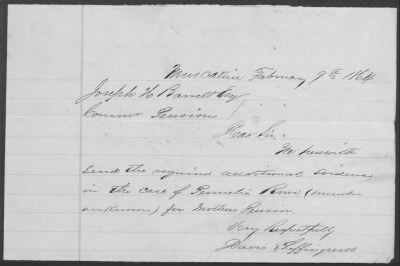 Muscatine February 9th 1864
Joseph H Barrett Esq
Commr Pension
Dear Sir,
We herewith
send the required additional Evidence
in the case of Permelia Rowe (number
unknown) for Mothers Pension
Very Respectfully
Davis &